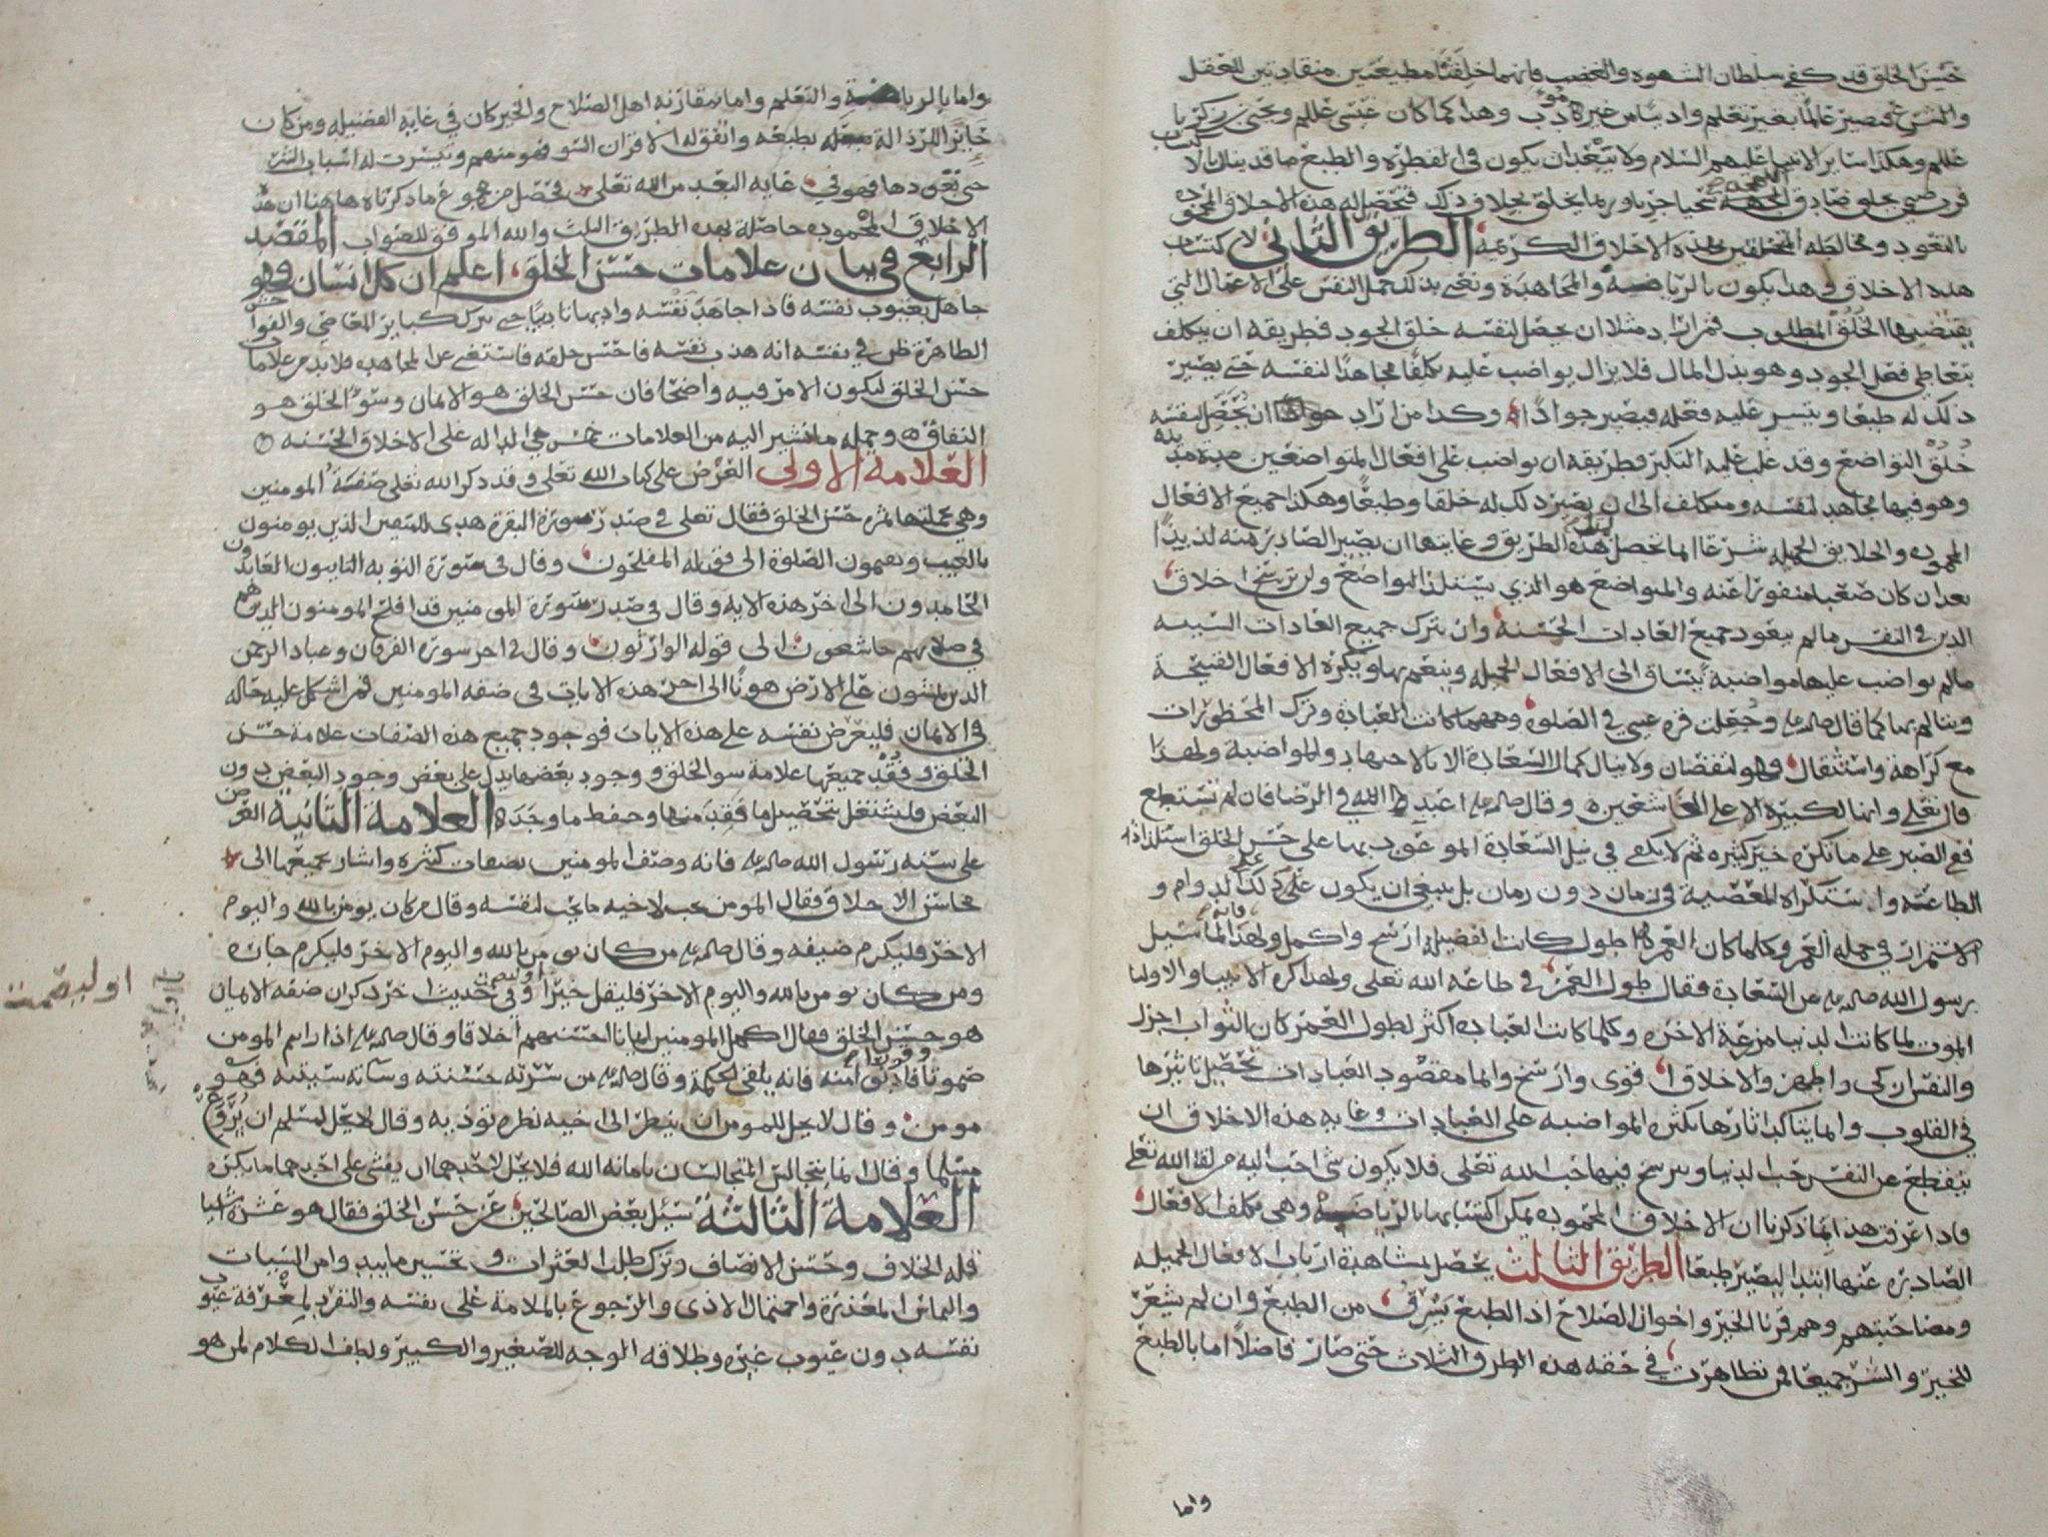 حسن الخلق قد كفى سلطان الشهوه والغضب فانهما خلقتا مطيعتين منقادتين للعقل
والشرع فيصير عالما بغير تعلم واديبا من غير مودب وهذا كما كان عيسى عللم ويحيى بن زكريا
عللم وهكذا ساير الانبيا عليهم السلام ولا يبعد ان يكون في الفطره والطبع ما قد ينال بالاكتساب
فرب صبي يخلق صادق اللهجه سخيا جريا وربما يخلق بخلاف ذلك فتحصل له هذه الاخلاق المحموده
بالتعود ومخالطه المتخلقين بهذه الاخلاق الكريمه الطريق الثاني لاكتساب
هذه الاخلاق في هذا يكون بالرياضه والمجاهدة ونعني بذلك حمل النفس على الاعمال التي
يقتضيها الخلق المطلوب فمن اراد مثلا ان يحصل لنفسه خلق الجود فطريقه ان يتكلف
بتعاطي فعل الجود وهو بذل المال فلا يزال يواضب عليه تكلفا مجاهدا لنفسه حتى يصير
ذلك له طبعا ويتيسر عليه فعله فيصير جوادا وكذا من اراد ان يحصل لنفسه
خلق التواضع وقد غلب عليه التكبر فطريقه ان يواضب على افعال المتواضعين مدة مديده
وهو فيها مجاهد لنفسه ومتكلف الى ان يصير ذلك له خلقا وطبعا وهكذا جميع الافعال
المحموده والخلايق الجميله شرعا انما تحصل بهذه الطريق وغايتها ان يصير الصادر منه لذيذا
بعد ان كان صعبا منفورا عنه والمتواضع هو الذي يستلذ التواضع ولن ترسخ اخلاق
الدين في النفس ما لم يتعود جميع العادات الحسنة وان يترك جميع العادات السيئه
ما لم يواضب عليها مواضبة يشتاق الى الافعال الجميله ويتنعم بها ويكره الافعال القبيحة
ويتالم بها كما قال صلم وجعلت قرة عيني في الصلوه ومهما كانت العبادة وترك المحظورات
مع كراهة واستثقال فهو لنقصان ولا ينال كمال السعادة الا بالاجتهاد والمواضبة ولهذا
قال تعلى وانها لكبيرة الا على الخاشعين وقال صلم اعبد الله في الرضا فان لم تستطع
ففي الصبر على ما تكره خير كثير ثم لا يكفي في نيل السعادة الموعود بها على حسن الخلق استلذاذ
الطاعه واستكراه المعصية في زمان دون زمان بل ينبغي ان يكون على ذلك الدوام و
الاستمرار في جمله العمر وكلما كان العمر اطول كانت الفضيله ارسخ واكمل ولهذا لما سيل
رسول الله صلم عن السعادة فقال طول العمر في طاعة الله تعلى ولهذا كره الانبيا والاوليا
الموت لما كانت الدنيا مزرعة الاخره وكلما كانت العباده اكثر لطول العمر كان الثواب اجزل
والنفس ازكى واطهر والاخلاق اقوى وارسخ وانما مقصود العبادات تحصيل تاثيرها
في القلوب وانما يتاكد اثارها بكثره المواضبه على العبادات وغايه هذه الاخلاق ان
ينقطع عن النفس حب الدنيا ويرسخ فيها حب الله تعلى فلا يكون شي احب اليه من لقا الله تعلى
فاذا عرفت هذا بما ذكرنا ان الاخلاق المحموده يمكن اكتسابها بالرياضه وهي تكلف الافعال
الصادره عنها ابتدا ليصير طبعا الطريق الثالث يحصل بمشاهدة ارباب الافعال الجميله
ومصاحبتهم وهم قرنا الخير واخوان الصلاح اذ الطبع يسرق من الطبع وان لم يشعر
للخير والشر جميعا فمن تظاهرت في حقه هذه الطرق الثلاث حتى صار فاضلا اما بالطبع
واما
واما بالرياضه والتعلم واما بمقارنه اهل الصلاح والخير كان في غايه الفضيله ومن كان
حايزا للرذالة بطبعه واتفق له الاقران السو فهو منهم وتيسرت له اسباب الشر
حتى تعودها فهو في غايه البعد من الله تعلى فحصل من مجموع ما ذكرناه هاهنا ان هذه
الاخلاق المحموده حاصلة بهذه الطريق الثلث والله الموفق للصواب المقصد
الرابع في بيان علامات حسن الخلق اعلم ان كل انسان فهو
جاهل بعيوب نفسه فاذا جاهد نفسه وادبها تاديبا حتى ترك كباير المعاصي والفواحش
الظاهرة ظن في نفسه انه هذب نفسه فاحسن خلقه فاستغنى عن المجاهده فلا بد من علامات
حسن الخلق ليكون الامر فيه واضحا فان حسن الخلق هو الايمان وسو الخلق هو
النفاق وجمله ما نشير اليه من العلامات خمس هي الداله على الاخلاق الحسنه
العلامة الاولى العرض على كتاب الله تعلى وقد ذكر الله تعلى صفة المومنين
وهي بجملتها ثمره حسن الخلق فقال تعلى في صدر سورة البقرة هدى للمتقين الذين يومنون
بالغيب ويقيمون الصلوة الى قوله المفلحون وقال في سورة التوبه التايبون العابدون
الحامدون الى اخر هذه الايه وقال في صدر سورة المومنين قد افلح المومنون الذين هم
في صلاتهم خاشعون الى قوله الوارثون وقال في اخر سورة الفرقان وعباد الرحمن
الذين يمشون على الارض هونا الى اخر هذه الايات في صفه المومنين فمن اشكل عليه حاله
في الايمان فليعرض نفسه على هذه الايات فوجود جميع هذه الصفات علامة حسن
الخلق وفقد جميعها علامة سو الخلق ووجود بعضها يدل على بعض وجود البعض دون
البعض فليشتغل بتحصيل ما فقد منها وحفظ ما وجده العلامة الثانية العرض
على سنه رسول الله صلم فانه وصف المومنين بصفات كثيره واشار بجميعها الى
محاسن الاخلاق فقال المومن يحب لاخيه ما يحب لنفسه وقال من كان يومن بالله واليوم
الاخر فليكرم ضيفه وقال صلم من كان يومن بالله واليوم الاخر فليكرم جاره
ومن كان يومن بالله واليوم الاخر فليقل خيرا او ليصمت وفي حديث اخر ذكر ان صفه الايمان
هو حسن الخلق فقال اكمل المومنين ايمانا احسنهم اخلاقا وقال صلم اذا رايتم المومن
صموتا وقورا فادنوا منه فانه يلقى الحكمة وقال صلم من سرته حسنته وساته سيئته فهو
مومن وقال لا يحل للمومن ان ينظر الى اخيه نظره توذيه وقال لا يحل لمسلم ان يروع
مسلما وقال انما يتجالس المتجالسان بامانه الله فلا يحل لاحدهما ان يفشي على اخيه ما يكره
العلامة الثالثة سئل بعض الصالحين عن حسن الخلق فقال هو عشرة اشيا
قله الخلاف وحسن الانصاف وترك طلب العثرات وتحسين ما يبدو من السيئات
والتماس المعذرة واحتمال الاذى والرجوع بالملامة على نفسه والتفرد بمعرفة عيوب
نفسه دون عيوب غيره وطلاقه الوجه للصغير والكبير ولطف الكلام لمن هو
او ليصمت